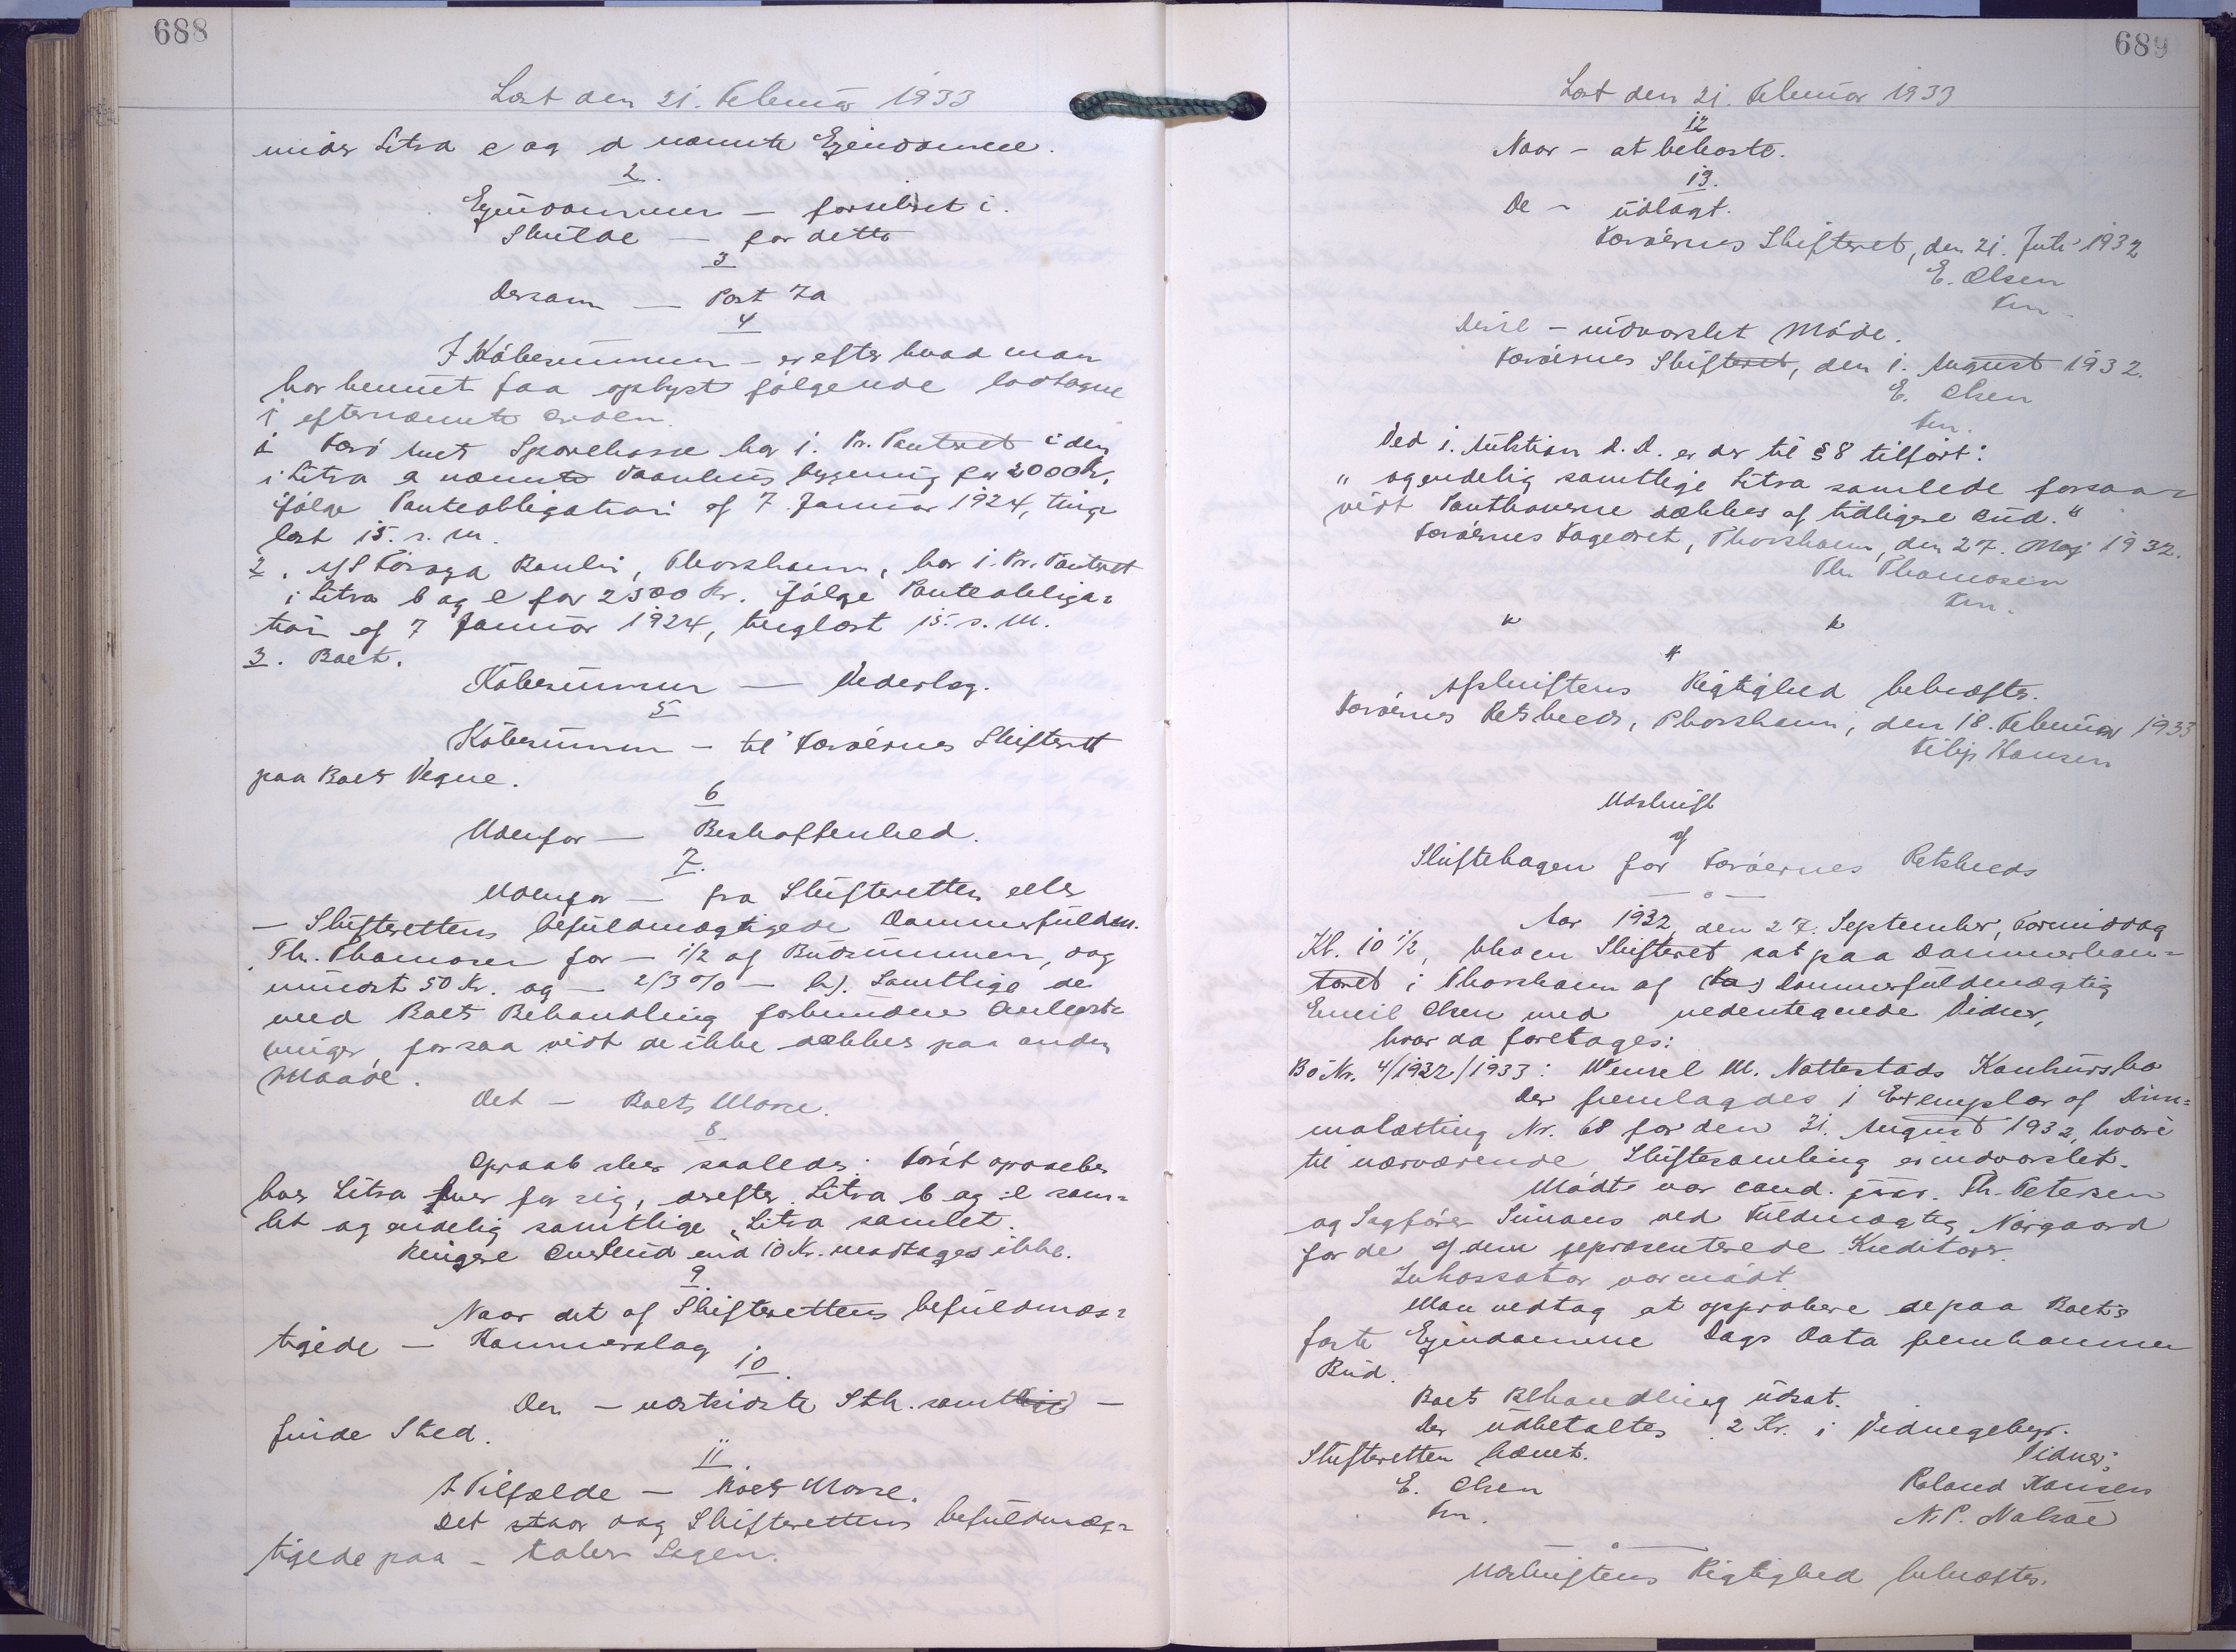 688
Læst den 21. Februar 1933
under Litra e og d nævnte Ejendomme.
2.
Ejendommen — forsikret i.
Skulde — for dette
3
Dersom — Post 7a
4
I Købesummen - er efter hvad man
har kunnet faa oplyst følgende lodtagne
i efternævnte Orden.
1 Færø Amts Sparekasse har 1. Pr. Panteret i den
i Litra a nævnte Vaanhus bygning for 2000 Kr.
ifølge Panteobligation af 7. Januar 1924, ting
læst 15. s. M.
2. A/S Föroya Banki, Thorshavn, har 1. Pr. Panteret
i Litra b og e for 2500 Kr. ifølge Panteobliga=
tion af 7 Januar 1924, tinglæst 15. s. M.
3. Boet.
Købesummen — Vederlag.
5
Købesummen - til Færøernes Skifteret
paa Boets Vegne.
6
Udenfor — Beskaffenhed.
7.
Udenfor — fra Skifteretten eller
— Skifterettens befuldmægtigede Dommerfuldm.
Th. Thomasen for — 1/2 af Budsummen, dog
mindst 50 Kr. og — 2/3 % — h). Samtlige de
med Boets Behandling forbundne Omkost=
ninger, forsaa vidt de ikke dækkes paa anden
Maade.
Det — Boets Masse.
8
Opraab sker saaledes: Først opraabes
hver Litra hver for sig, derefter Litra b og e sam=
let og endelig samtlige Litra samlet.
Ringere Overbud end 10 Kr. modtages ikke.
9.
Naar det af Skifterettens befuldmæg=
tigede — Hammerslag
10.
Den — næstsidste Stk. samt —
finde Sted.
11.
I Tilfælde — Boets Masse.
Det staar dog Skifterettens befuldmæg=
tigede paa — taber Sagen.
689
Læst den 21. Februar 1933
12
Naar — at bekoste.
13.
De — udlagt.
Færøernes Skifteret, den 21. Juli 1932
E. Olsen
Km.
Desil — indvarslet Møde.
Færøernes Skifteret, den 1. August 1932.
E. Olsen
Km.
Ved 1. Auktion D. D. er der til § 8 tilført:
" og endelig samtlige Litra samlede forsaa=
vidt Panthaverne dækkes af tidligere Bud."
Færøernes Fogedret, Thorshavn, den 27. Maj 1932.
Th. Thomasen
Km.
Afskriftens Rigtighed bekræftes.
Færøernes Retskreds, Thorshavn, den 18. Februar 1933
Filip Hansen
Udskrift
af
Skiftebogen for Færøernes Retskreds
Aar 1932, den 27. September, Formiddag
Kl. 10 1/2, blev en Skifteret sat paa Dommerkon=
toret i Thorshavn af (Km) Dommerfuldmægtig
Emil Olsen med undertegnede Vidner,
hvor da foretages:
Bo Nr. 4/1932/1933: Wensel M. Nattestads Konkursbo
Der fremlagdes 1 Exemplar af Dim=
malætting Nr. 68 for den 31. August 1932, hvori
til nærværende Skiftesamling er indvarslet.
Mødt var cand. jur. Th. Petersen
og Sagfører Simans ved Fuldmægtig Nørgaard
for de af dem repræsenterede Kreditorer.
Inkassator var mødt
Man vedtog at approbere de paa Boets
faste Ejendomme Dags Dato fremkomne
Bud.
Boets Behandling udsat.
Der udbetaltes 2 Kr. i Vidnegebyr.
Skifteretten hævet.
Vidner:
E. Olsen
Roland Hansen
Km.
N. P. Nolsøe
Udskriftens Rigtighed bekræftes.